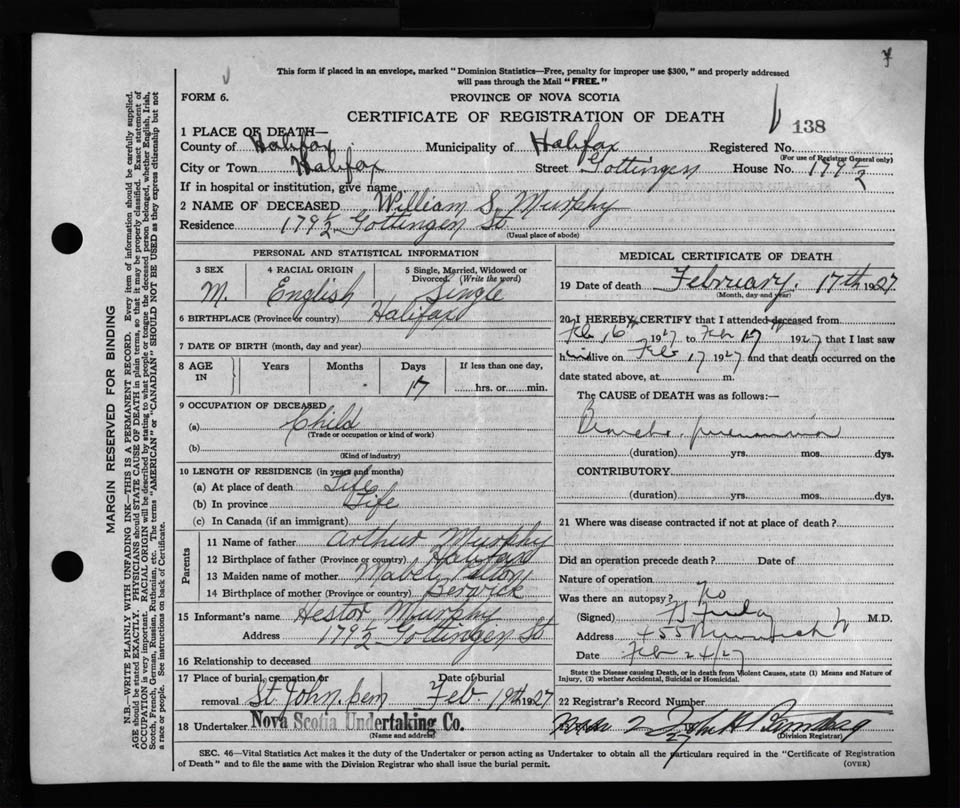 This form if placed in an envelope, marked "Dominion Statistics—Free, penalty for improper use $300," and properly addressed
will pass through the Mail "FREE."
FORM 6.
PROVINCE OF NOVA SCOTIA
CERTIFICATE OF REGISTRATION OF DEATH
138
1 PLACE OF DEATH—
County of Halifax Municipality of Halifax Registered No.
(For use of Registrar General only)
City or Town Halifax Street Gottingen House No. 179½
If in hospital or institution, give name
2 NAME OF DECEASED William S. Murphy
Residence 179½ Gottingen St
(Usual place of abode)
PERSONAL AND STATISTICAL INFORMATION
3 SEX 4 RACIAL ORIGIN 5 Single, Married, Widowed or Divorced. (Write the word)
M. English Single
6 BIRTHPLACE (Province or country) Halifax
7 DATE OF BIRTH (month, day and year)
8 AGE IN Years Months Days If less than one day,
17 hrs. or min.
9 OCCUPATION OF DECEASED
(a) Child
(Trade or occupation or kind of work)
(b)
(Kind of industry)
10 LENGTH OF RESIDENCE (in years and months)
(a) At place of death Life
(b) In province Life
(c) In Canada (if an immigrant)
Parents
11 Name of father Arthur Murphy
12 Birthplace of father (Province or country) Halifax
13 Maiden name of mother Mabel
14 Birthplace of mother (Province or country) Berwick
15 Informant's name Hestor Murphy
Address 179½ Gottingen St
16 Relationship to deceased
17 Place of burial, cremation or Date of burial
removal St. John. cem Feb 19th 1927
18 Undertaker Nova Scotia Undertaking Co.
(Name and address)
MEDICAL CERTIFICATE OF DEATH
19 Date of death February. 17th 1927
(Month, day and year)
20 I HEREBY CERTIFY that I attended deceased from
Feb 16th 1927 to Feb 17th 1927 that I last saw
him alive on Feb 17 1927 and that death occurred on the
date stated above, at m.
The CAUSE of DEATH was as follows:—
Broncho. pneumonia
(duration) yrs. mos. dys.
CONTRIBUTORY.
(duration) yrs. mos. dys.
21 Where was disease contracted if not at place of death?
Did an operation precede death? Date of
Nature of operation
Was there an autopsy? No
(Signed) M.D.
Address
Date Feb 24/27
State the Disease causing Death, or in death from Violent Causes, state (1) Means and Nature of
Injury, (2) whether Accidental, Suicidal or Homicidal.
22 Registrar's Record Number
(Division Registrar)
SEC. 46—Vital Statistics Act makes it the duty of the Undertaker or person acting as Undertaker to obtain all the particulars required in the "Certificate of Registration
of Death" and to file the same with the Division Registrar who shall issue the burial permit. (OVER)
MARGIN RESERVED FOR BINDING
N.B.—WRITE PLAINLY WITH UNFADING INK—THIS IS A PERMANENT RECORD. Every item of information should be carefully supplied.
AGE should be stated EXACTLY. PHYSICIANS should STATE CAUSE OF DEATH in plain terms, so that it may be properly classified. Exact statement of
OCCUPATION is very important. RACIAL ORIGIN will be described by stating to what people or tongue the deceased person belonged, whether English, Irish,
Scotch, French, German, Russian, Ruthenian, etc. The terms "AMERICAN" or "CANADIAN" SHOULD NOT BE USED as they express citizenship but not
a race or people. See instructions on back of Certificate.